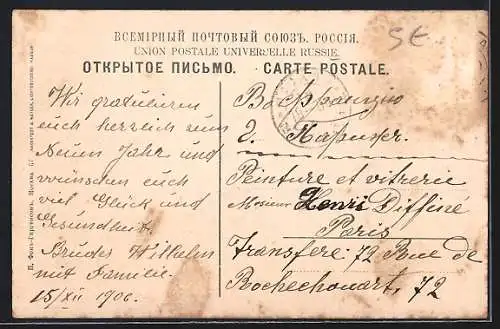 ВСЕМІРНЫЙ ПОЧТОВЫЙ СОЮЗЪ. РОССІЯ.
UNION POSTALE UNIVERSELLE RUSSIE.
ОТКРЫТОЕ ПИСЬМО. — CARTE POSTALE.
Wir gratulieren
euch herzlich zum
Neuen Jahr und
wünschen euch
viel Glück und
Gesundheit.
Bruder Wilhelm
mit Familie.
15/XII 1906.
Во Францію
г. Парижъ.
Peinture et vitrerie
Monsieur Henri Diffiné
Paris
Transfere: 72 Rue de
Rochechouart, 72
5€